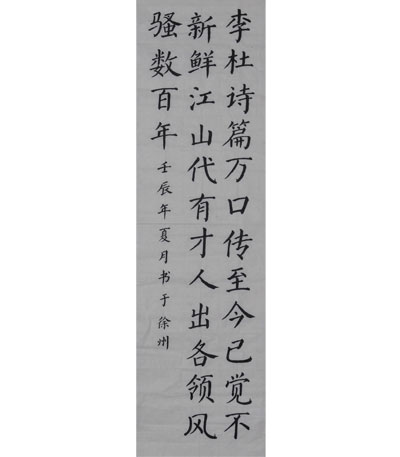 李杜诗篇万口传至今已觉不
新鲜江山代有才人出各领风
骚数百年
壬辰年夏月书于徐州